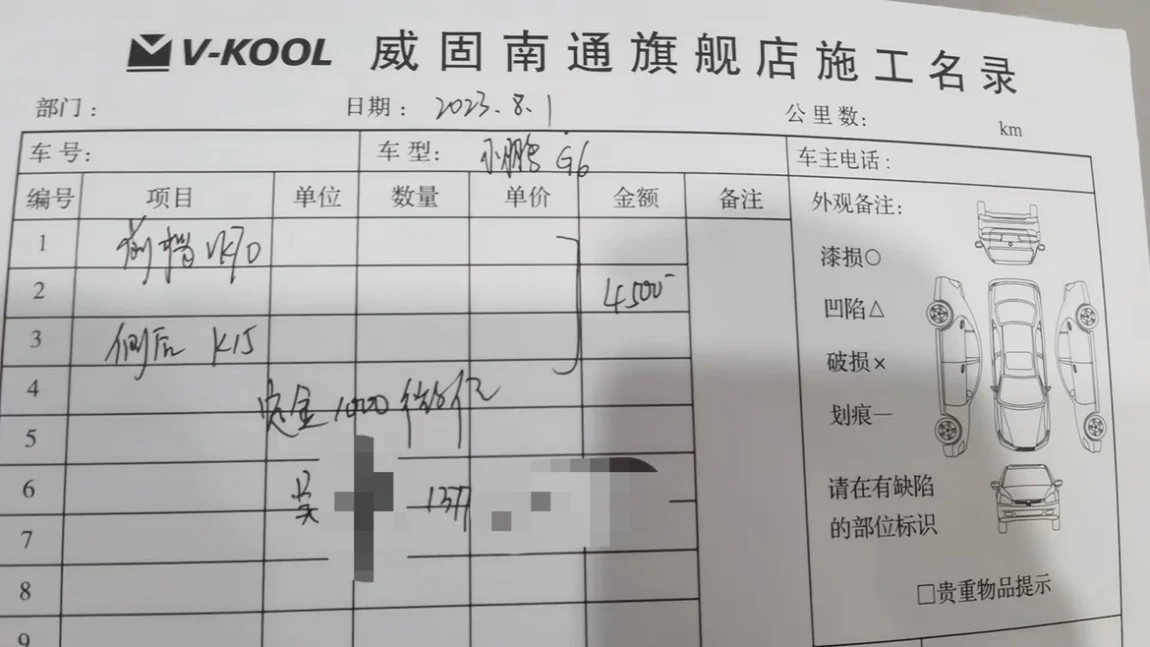 V-KOOL 威固南通旗舰店施工名录
部门： 日期： 2023.8.1 公里数： km
车号： 车型： 小鹏 G6 车主电话：
编号 项目 单位 数量 单价 金额 备注 外观备注：
1 前挡 VK70
2 4500-
3 侧后 K15
4
定金1000
5
6 吴 1377
7
8
9
漆损○
凹陷△
破损×
划痕—
请在有缺陷
的部位标识
□贵重物品提示